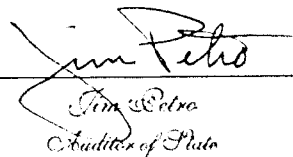 Jim Petro
Jim Petro
Auditor of State